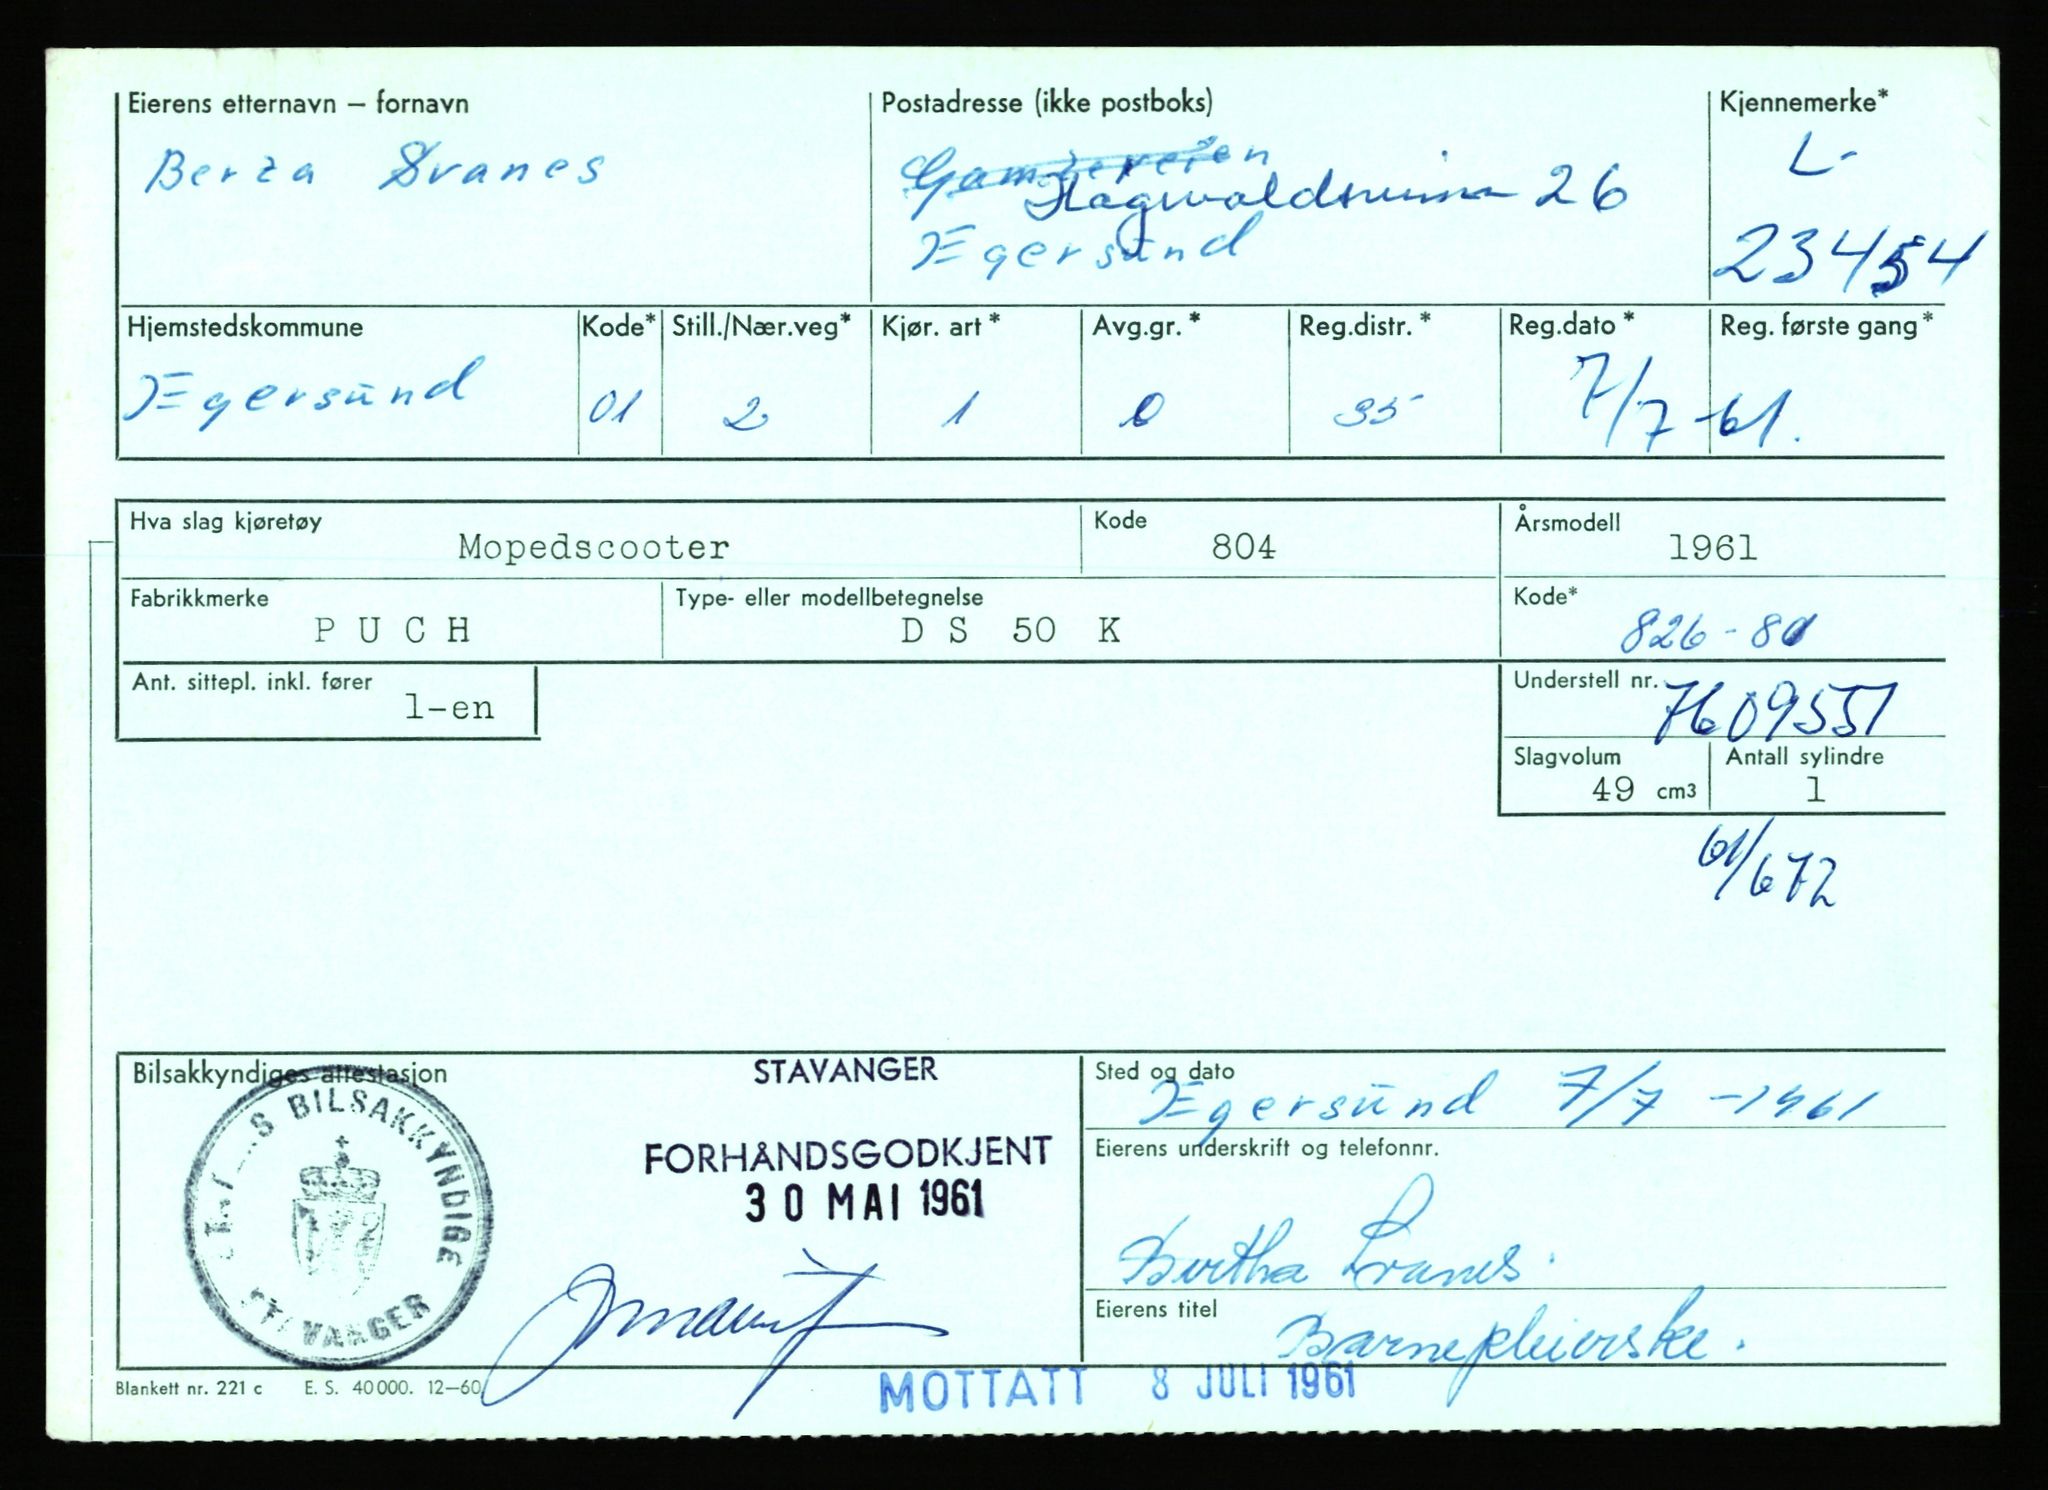 Eierens etternavn – fornavn
Berta Svanes
Postadresse (ikke postboks)
26
Egersund
Kjennemerke*
L-
23454
Hjemstedskommune
Egersund
Kode*
01
Still./Nær.veg*
2
Kjør. art *
1
Avg.gr. *
0
Reg.distr. *
35
Reg.dato *
7/7-61.
Reg. første gang *
Hva slag kjøretøy
Mopedscooter
Kode
804
Årsmodell
1961
Fabrikkmerke
P U C H
Type- eller modellbetegnelse
D S 50 K
Kode*
826-80
Ant. sittepl. inkl. fører
1-en
Understell nr.
7609551
Slagvolum
49 cm3
Antall sylindre
1
61/672
Bilsakkyndiges attestasjon
S BILSAKKYNDIGE
STAVANGER
STAVANGER
FORHÅNDSGODKJENT
30 MAI 1961
Sted og dato
Egersund 7/7 -1961
Eierens underskrift og telefonnr.
Bertha Svanes.
Eierens titel
Barnepleierske.
Blankett nr. 221 c E. S. 40 000. 12–60
MOTTATT 8 JULI 1961